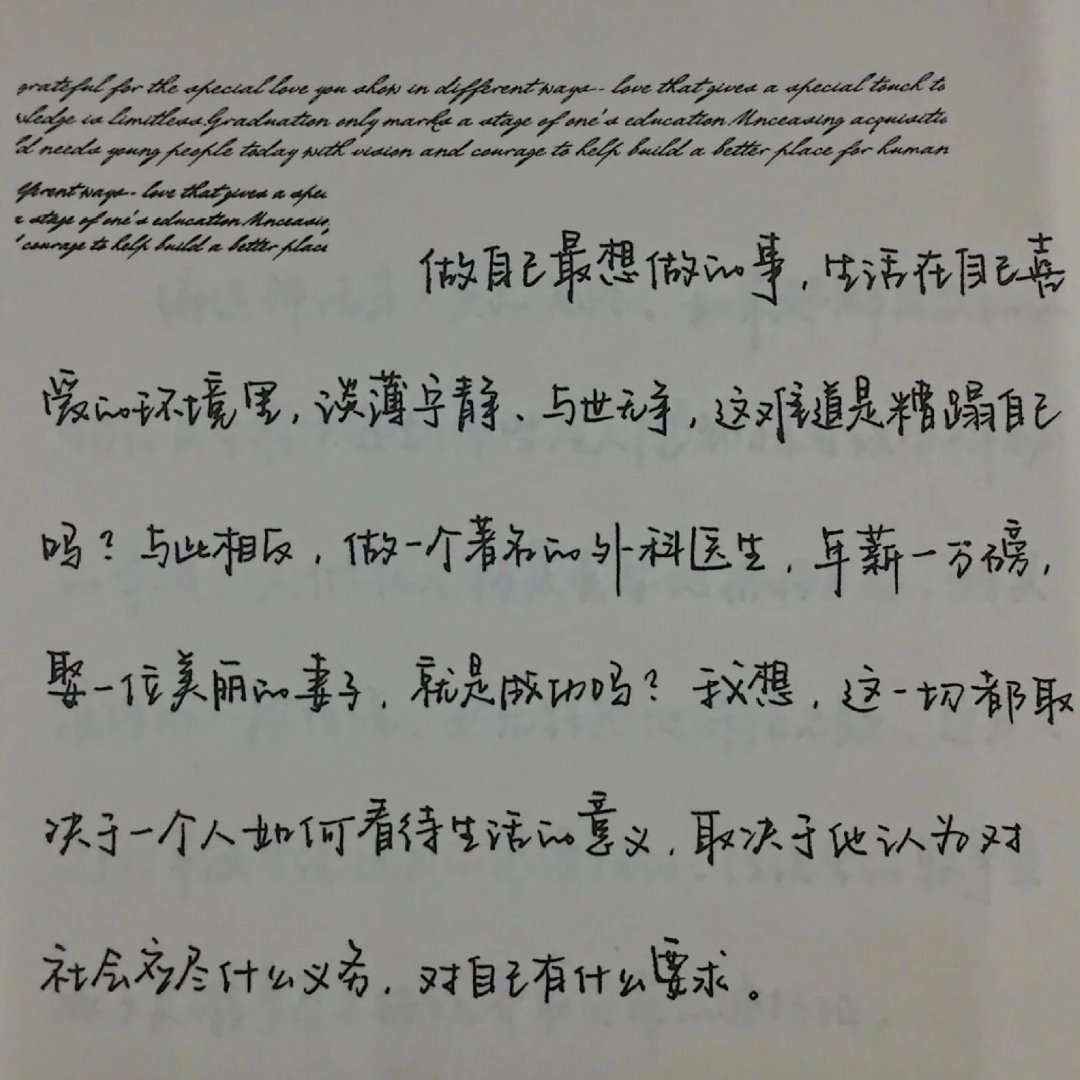 grateful for the special love you show in different ways-- love that gives a special touch to
wledge is limitless.Graduation only marks a stage of one's education.Unceasing acquisitio
'd needs young people today with vision and courage to help build a better place for human
fferent ways-- love that gives a spec
a stage of one's education.Unceasing
' courage to help build a better place
做自己最想做的事，生活在自己喜
爱的环境里，淡薄宁静、与世无争，这难道是糟蹋自己
吗？与此相反，做一个著名的外科医生，年薪一万磅，
娶一位美丽的妻子，就是成功吗？我想，这一切都取
决于一个人如何看待生活的意义，取决于他认为对
社会应尽什么义务，对自己有什么要求。